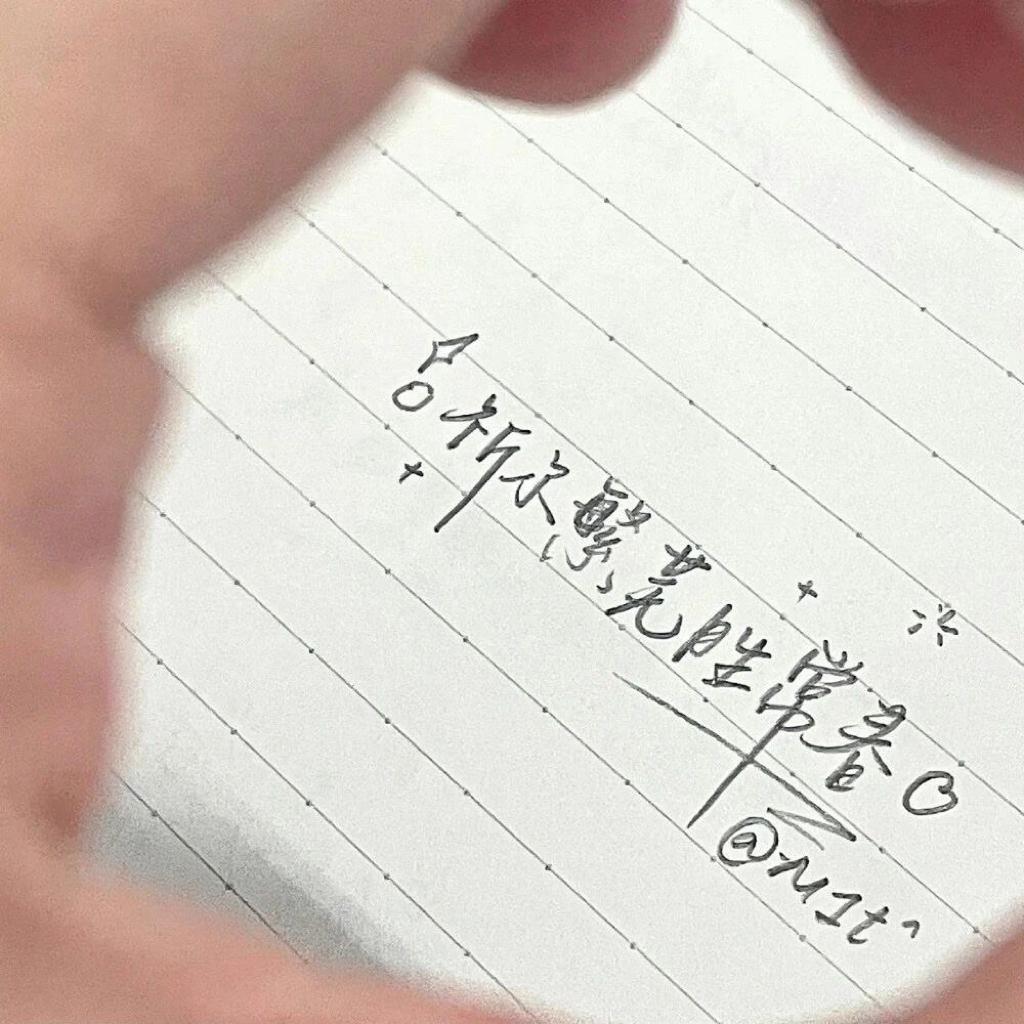 祈尔繁荒胜常春
@M1t^